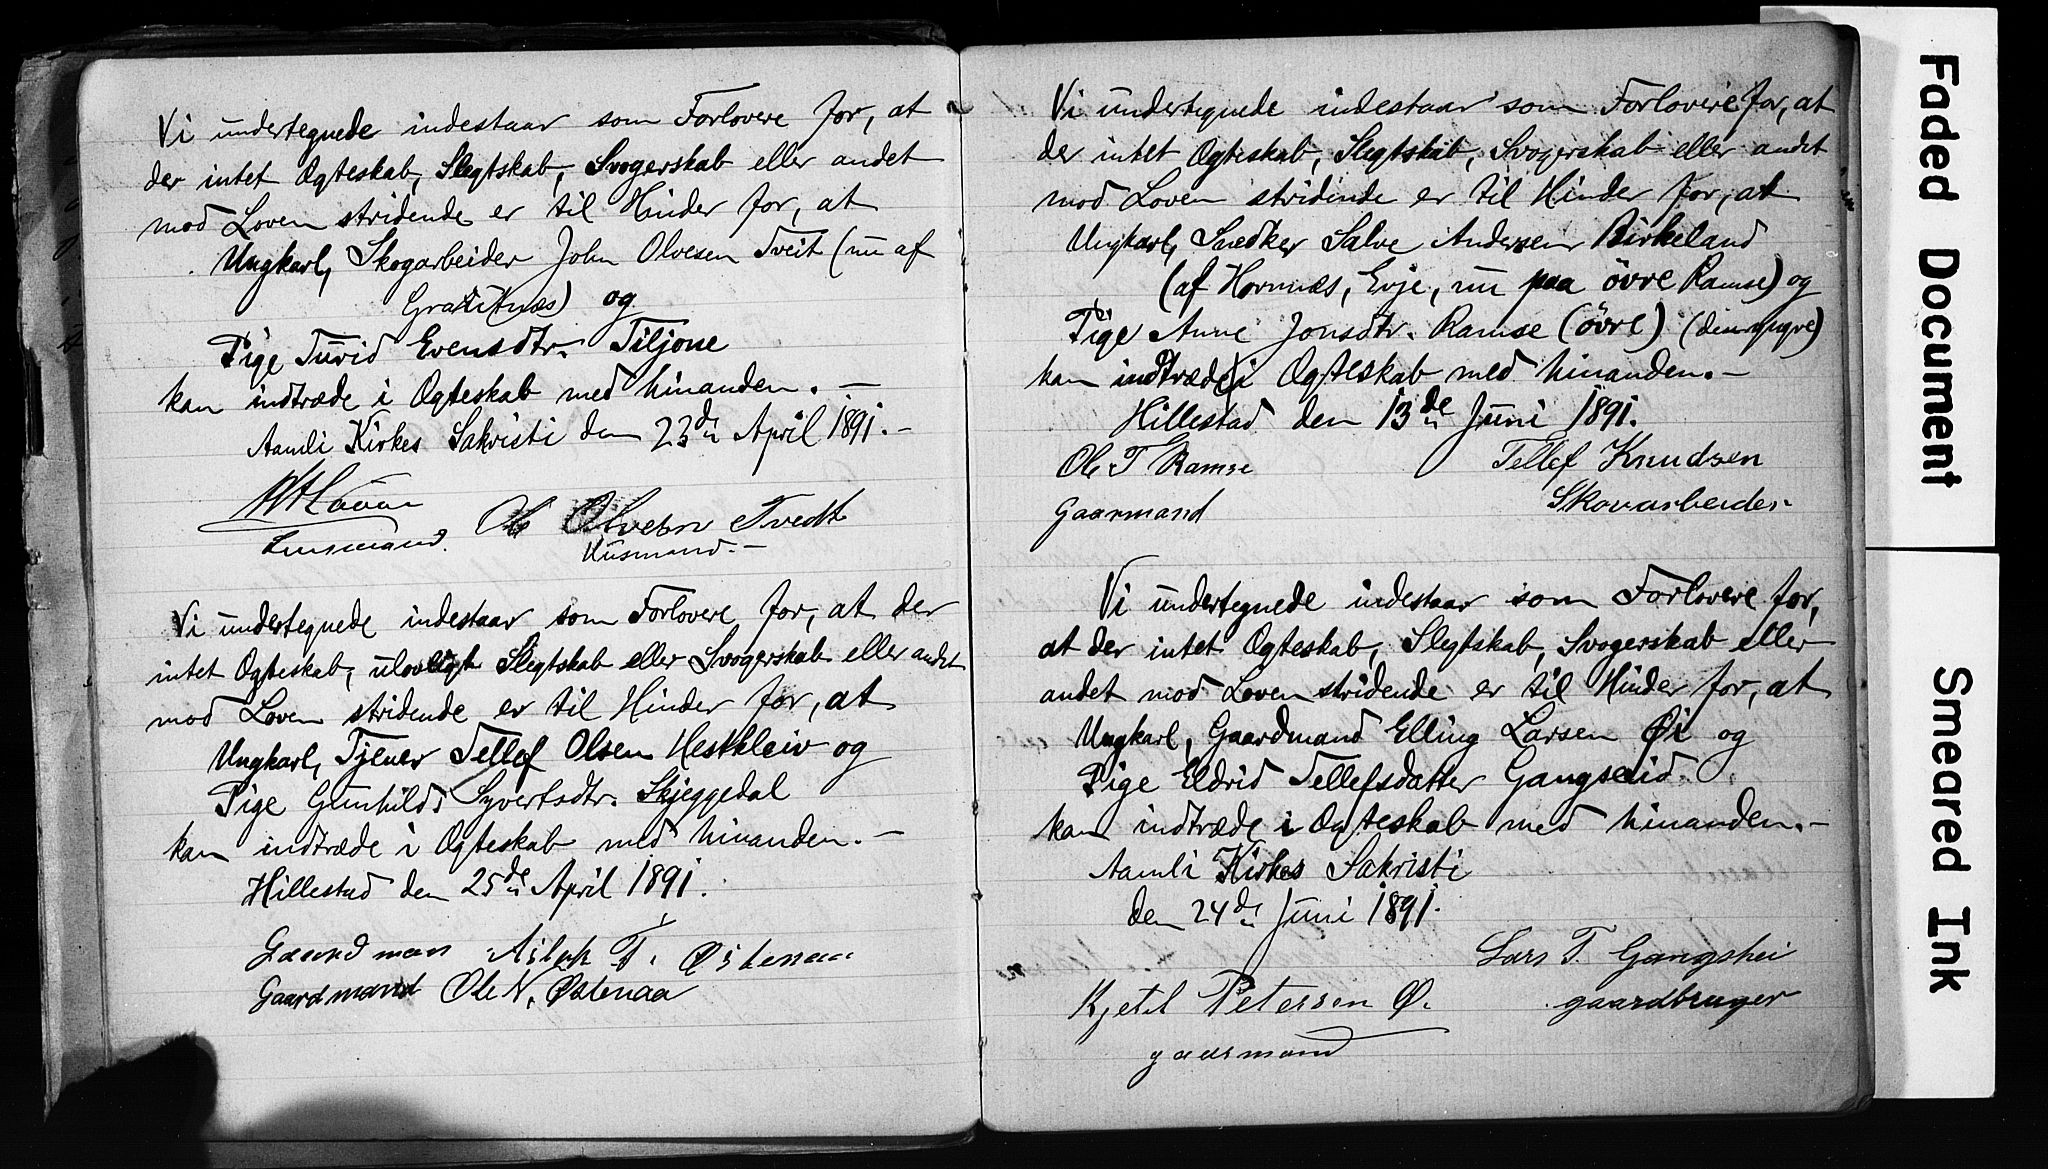 Vi undertegnede indestaar som Forlovere for, at
der intet Ægteskab, Slegtskab, Svogerskab eller andet
mod Loven stridende er til Hinder for, at
Ungkarl, Skogarbeider John Olvesen Tveit (nu af
og
Pige Turid Evensdtr. Tiljone
kan indtræde i Ægteskab med hinanden. —
Aamli Kirkes Sakristi den 23de April 1891. —
Ole Olvesen Tvedt
Husmand. —
Vi undertegnede indestaar som Forlovere for, at der
intet Ægteskab, ulovligt Slegtskab eller Svogerskab eller andet
mod Loven stridende er til Hinder for, at
Ungkarl, Tjener Tellef Olsen Hestkleiv og
Pige Gunhild Syvertsdtr. Skjeggedal
kan indtræde i Ægteskab med hinanden. —
Hillestad den 25de April 1891.
Gaardman Aslak T. Østenaa
Gaardmand Ole N. Østenaa
Vi undertegnede indestaar som Forlovere for, at
der intet Ægteskab, Slegtskab, Svogerskab eller andet
mod Loven stridende er til Hinder for, at
Ungkarl, Snedker Salve Andersen Birkeland
(af Hornnæs, Evje, nu paa övre Ramse) og
Pige Anne Jonsdtr. Ramse (övre) (den yngre)
kan indtræde i Ægteskab med hinanden. —
Hillestad den 13de Juni 1891.
Ole T Ramse Tellef Knudsen
Gaarmand Skovarbeider
Vi undertegnede indestaar som Forlovere for,
at der intet Ægteskab, Slegtskab, Svogerskab eller
andet mod Loven stridende er til Hinder for, at
Ungkarl, Gaardmand Elling Larsen Øi og
Pige Eldrid Tellefsdatter Gangseid
kan indtræde i Ægteskab med hinanden. —
Aamli Kirkes Sakristi
den 24de Juni 1891.
Lars T. Gangshei
Kjetil Petersen Ø. gaardbruger
gaarmand
Faded Document
Smeared Ink